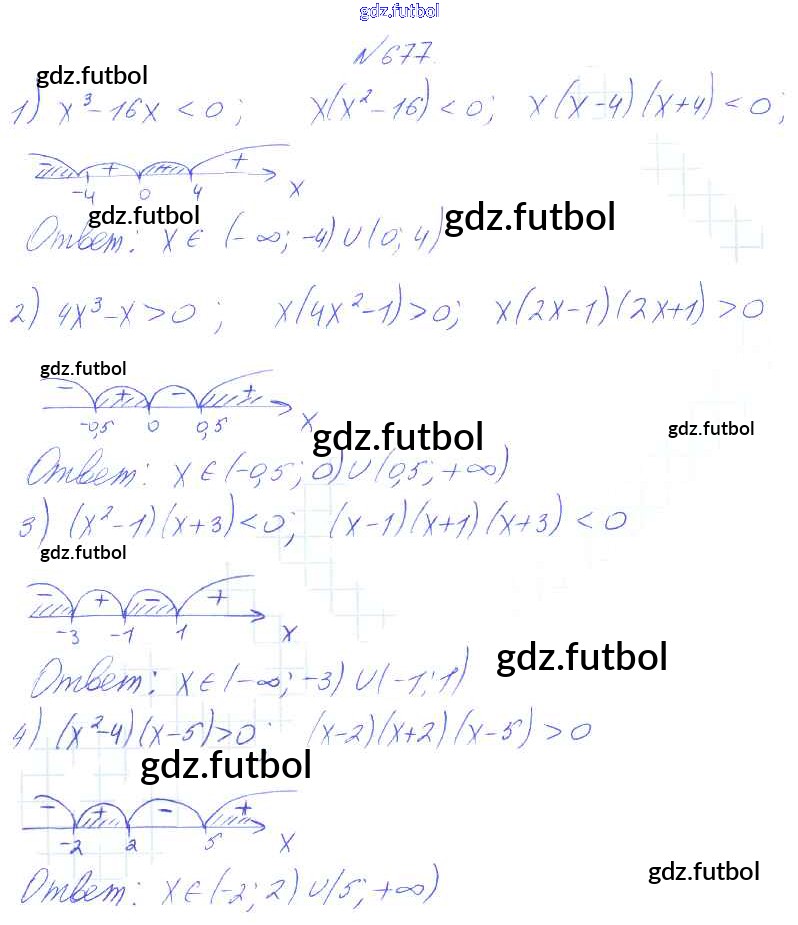 gdz.futbol
№677.
gdz.futbol
1) x³-16x < 0; x(x²-16) < 0; x(x-4)(x+4) < 0;
- + - +
-4 0 4 x
gdz.futbol gdz.futbol
Ответ: x ∈ (-∞; -4) ∪ (0; 4)
2) 4x³-x > 0; x(4x²-1) > 0; x(2x-1)(2x+1) > 0
gdz.futbol
- + - +
-0,5 0 0,5 x
gdz.futbol gdz.futbol
Ответ: x ∈ (-0,5; 0) ∪ (0,5; +∞)
3) (x²-1)(x+3) < 0; (x-1)(x+1)(x+3) < 0
gdz.futbol
- + - +
-3 -1 1 x
gdz.futbol
Ответ: x ∈ (-∞; -3) ∪ (-1; 1)
4) (x²-4)(x-5) > 0; (x-2)(x+2)(x-5) > 0
gdz.futbol
- + - +
-2 2 5 x
gdz.futbol
Ответ: x ∈ (-2; 2) ∪ (5; +∞)